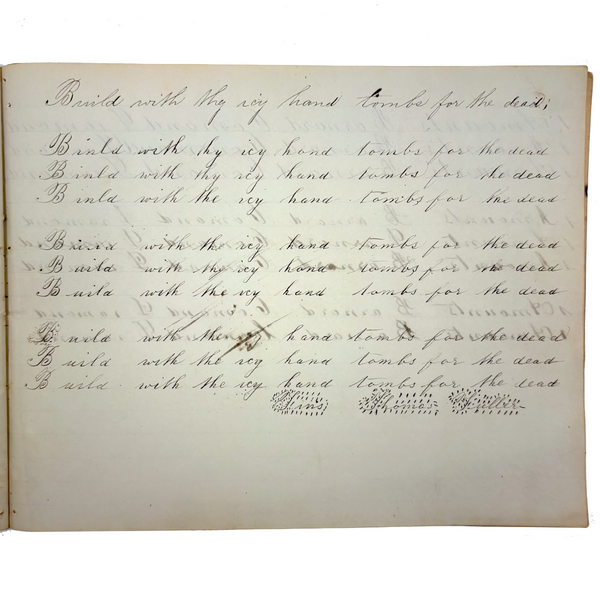 Build with thy icy hand tombs for the dead;
Binld with thy icy hand tombs for the dead
Binld with thy icy hand tombs for the dead
Binld with the icy hand tombs for the dead
with the icy hand tombs for the dead
Build with the icy hand tombs for the dead
Build with the icy hand tombs for the dead
Build with the hand tombs for the dead
Build with the icy hand tombs for the dead
Build with the icy hand tombs for the dead
Thomas